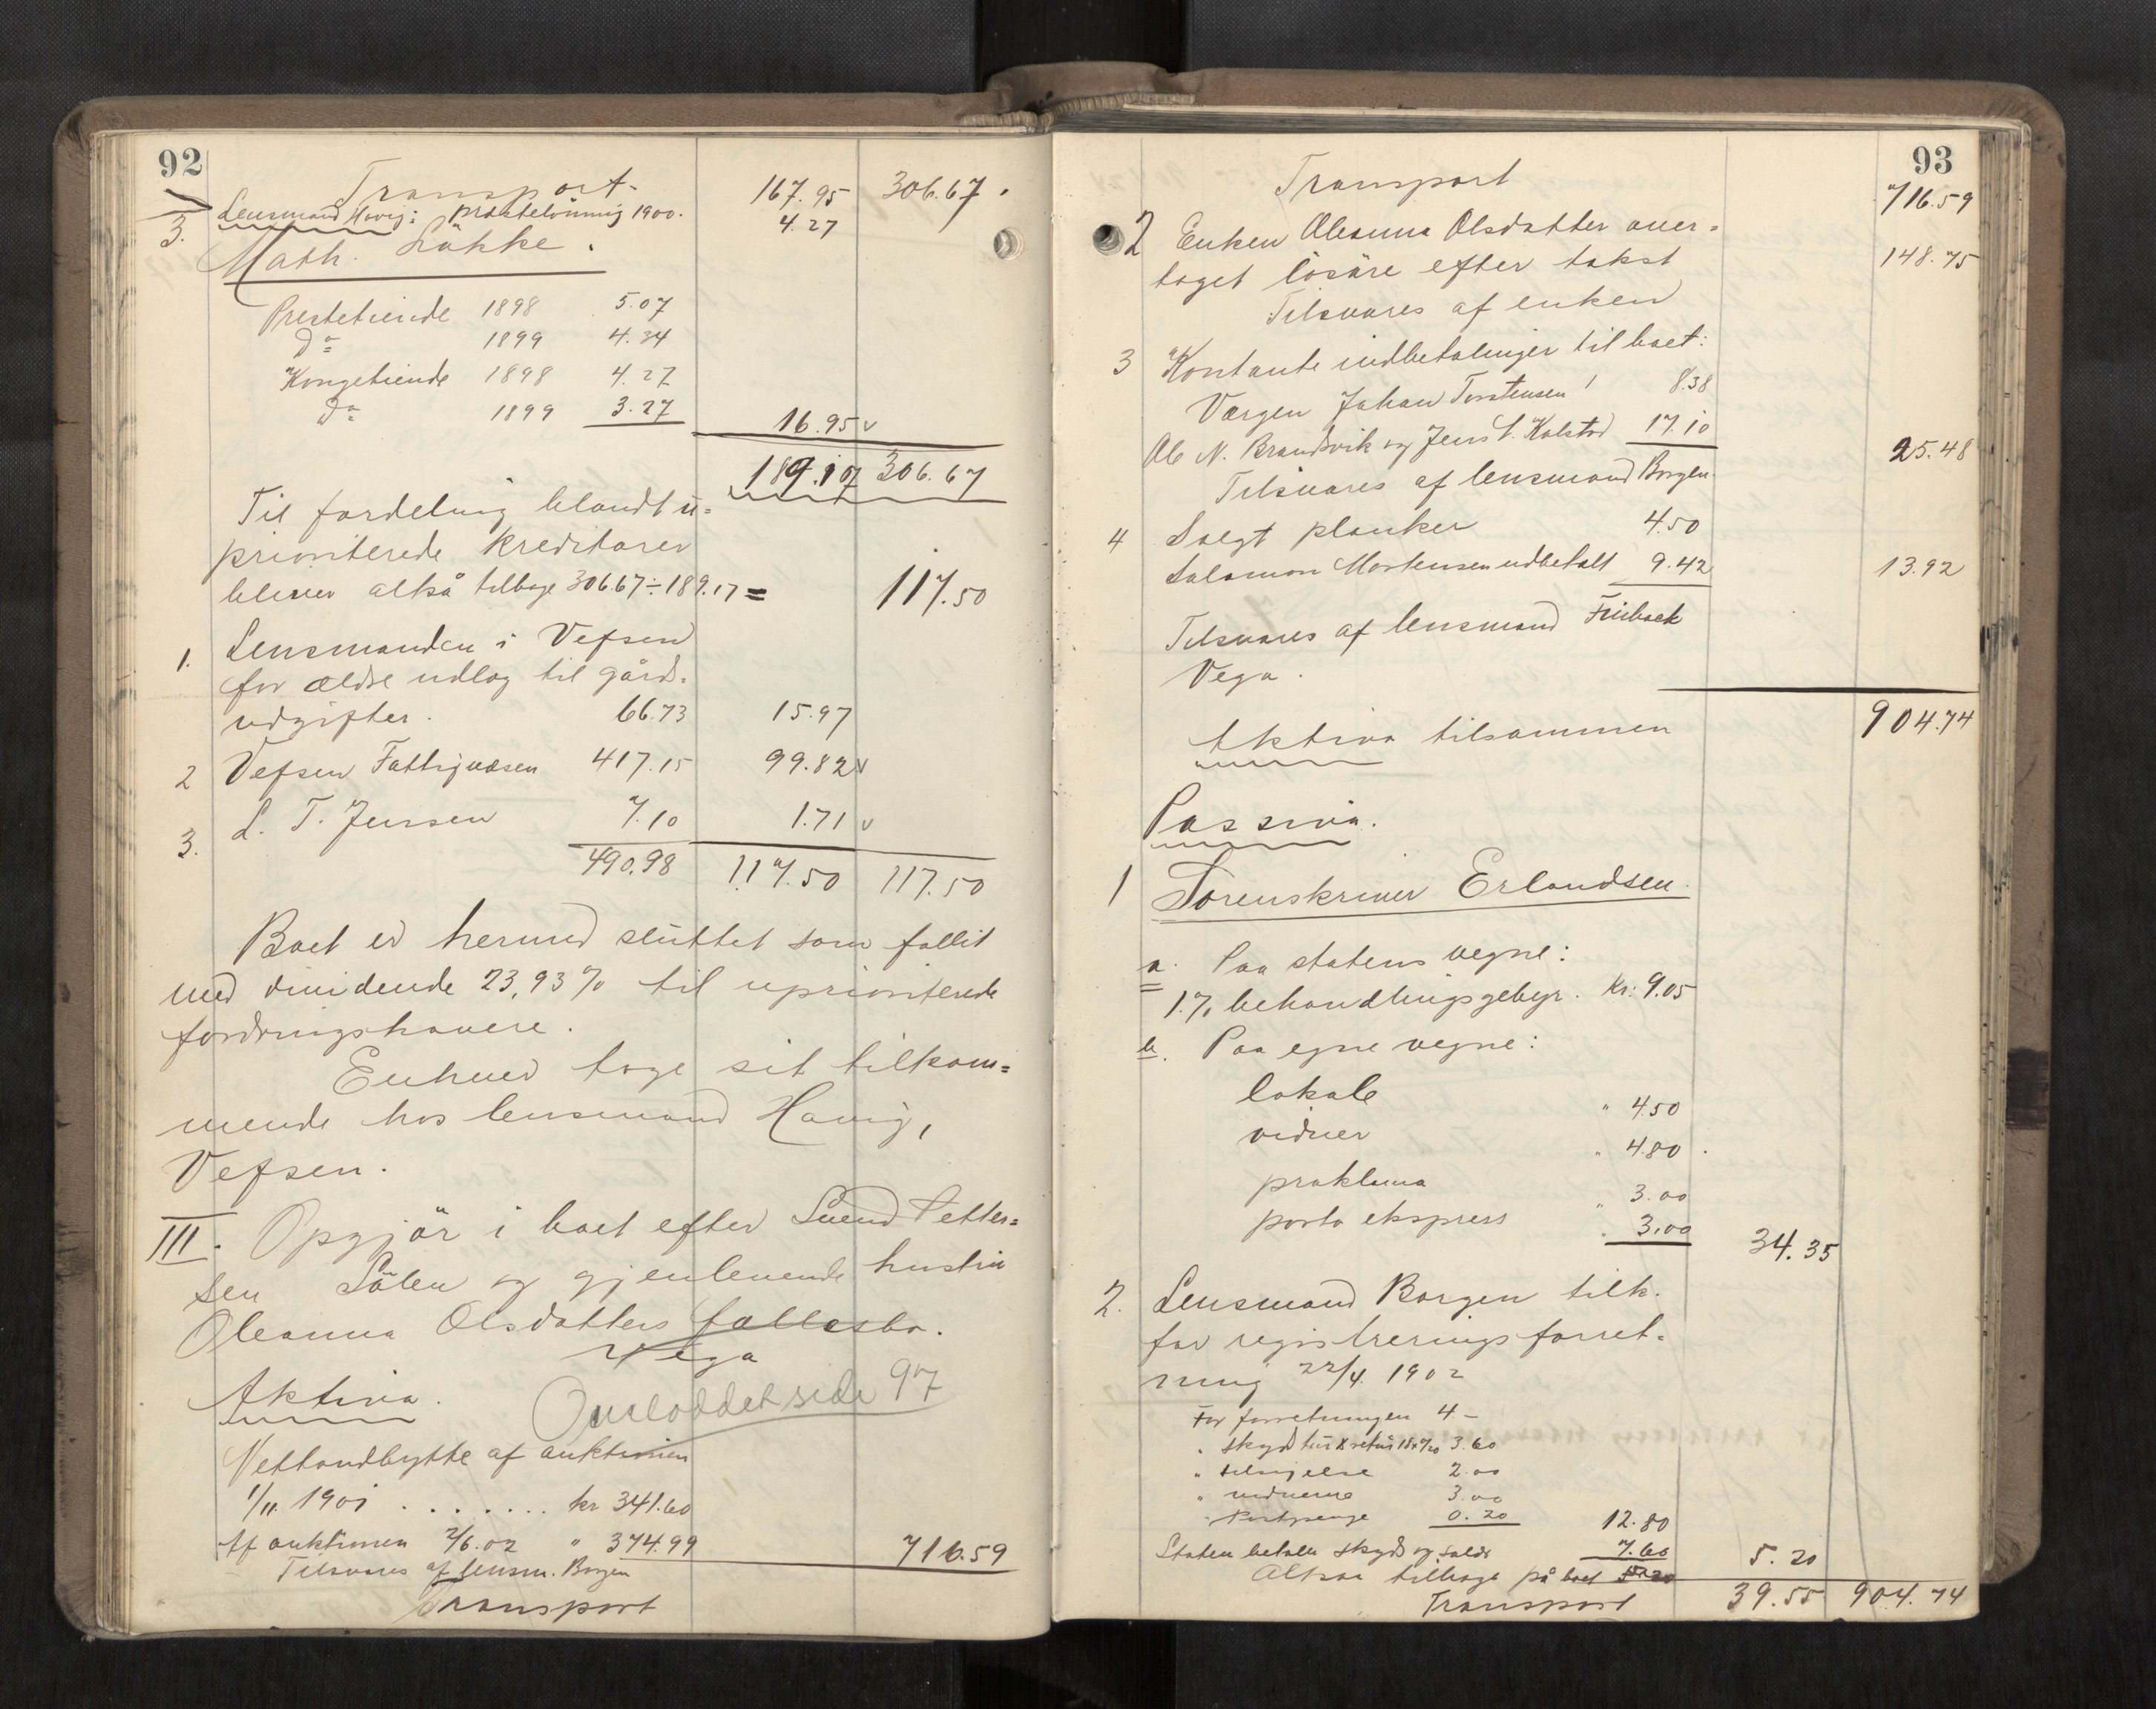 92
Transport. 167.95 306.67.
Lensmand Havig: prästelönning 1900. 4.27
3. Math. Lökke.
Prestetiende 1898 5.07
Do 1899 4.34
Kongetiende 1898 4.27
Do 1899 3.27 16.95 v
189.17 306.67
Til fordeling blandt u=
prioriterede kreditorer
bliver altså tilbage 306.67 ÷ 189.17 = 117.50
1. Lensmanden i Vefsen
for ældre udlæg til gårds=
udgifter. 66.73 15.97
2 Vefsen Fattigvæsen 417.15 99.82 v
3. L. T. Jensen 7.10 1.71 v
490.98 117.50 117.50
Boet er hermed sluttet som fallit
med dividende 23,93% til uprioriterede
fordringshavere.
Enhver tage sit tilkom=
mende hos lensmand Havig,
Vefsen.
III. Opgjör i boet efter Svend Petter=
sen Sölen og gjenlevende hustru
Oleanna Olsdatters fællesbo.
Vega
Aktiva. Omloddet side 97
Nettoudbytte af auktionen
1/11. 1901 . . . . . . . kr 341.60
Af auktionen 2/6.02 " 374.99 716.59
Tilsvares af lensm. Borgen
Transport
93
Transport 716.59
2 Enken Oleanna Olsdatter over=
taget lösöre efter takst 148.75
Tilsvares af enken
3 Kontante indbetalinger til boet:
Værgen Johan Torstensen 8.38
Ole N. Brandsvik og Jens L. Kolstad 17.10 25.48
Tilsvares af lensmand Borgen.
4 Solgt planker 4.50
Salamon Mortensen udbetalt 9.42 13.92
Tilsvares af lensmand
Vega.
904.74
Aktiva tilsammen
Passiva.
1 Sorenskriver Erlandsen.
a. Paa statens vegne:
1% behandlingsgebyr. Kr: 9.05
b. Paa egne vegne:
lokale " 4.50
vidner " 4.80.
proklama " 3.00
porto ekspress " 3.00 34.35
2. Lensmand Borgen tilk.
for registreringsforret=
ning 22/4. 1902
For forretningen 4 –
" skyds tur & retur 18 x 3.60
" tilsigelse 2.00
" vidnerne 3.00
" Postpenge 0.20 12.80
Staten betaler skyds og 7.60 5.20
Altsaa tilbage på boet 5.20
Transport 39.55 904.74